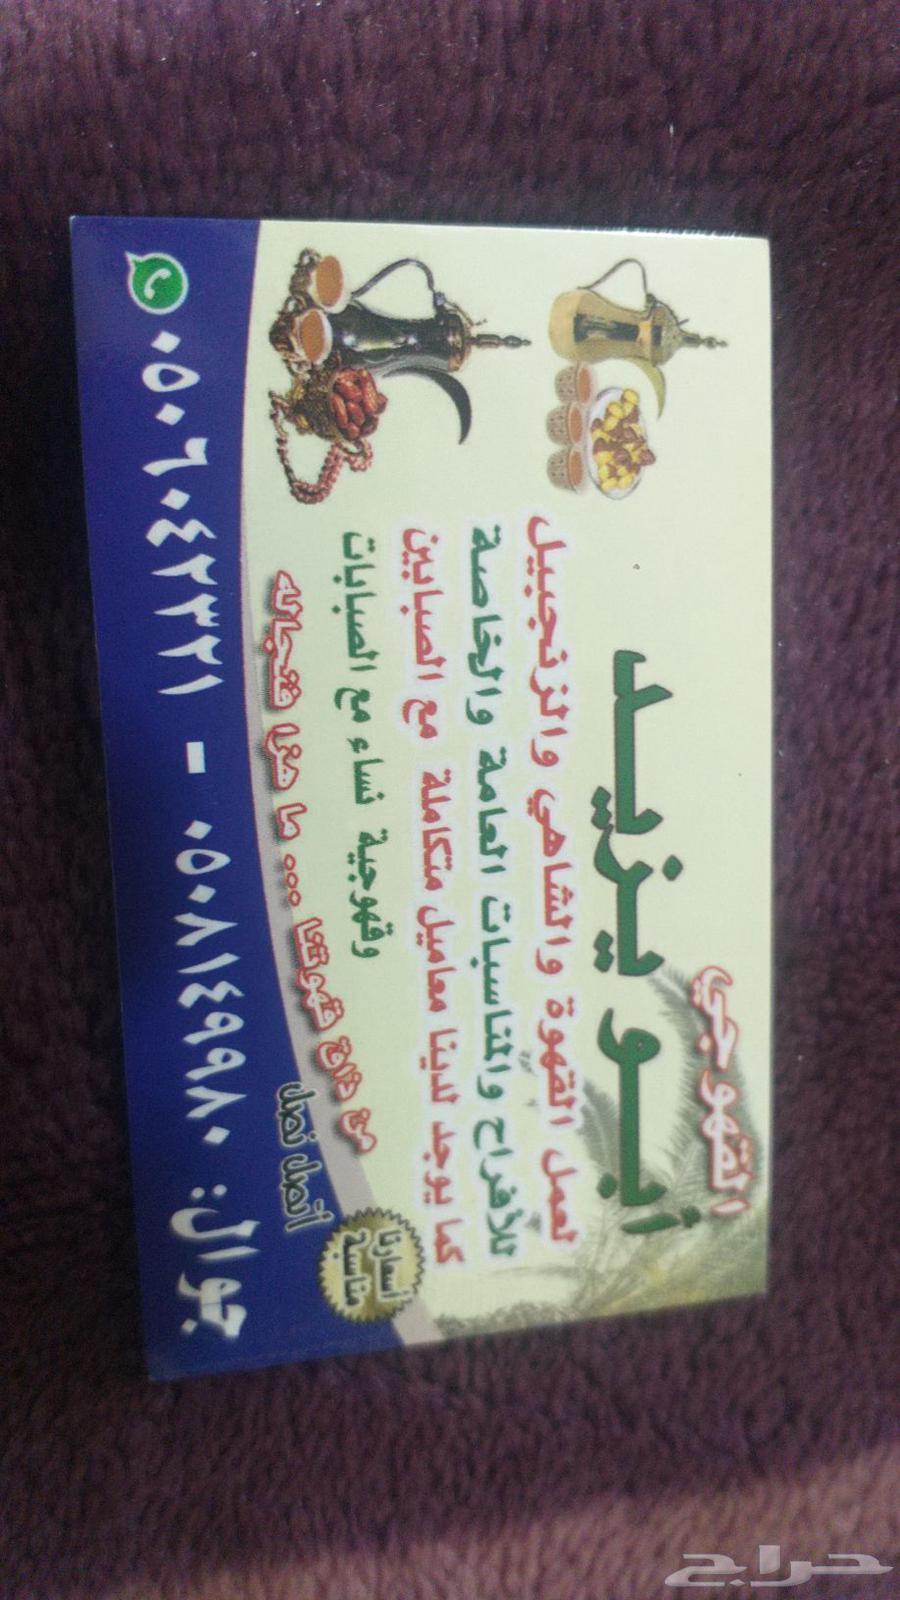 القهوجي
أبو يزيد
لعمل القهوة والشاهي والزنجبيل
للأفراح والمناسبات العامة والخاصة
كما يوجد لدينا معاميل متكاملة مع الصبابين
وقهوجية نساء مع الصبابات
من ذاق قهوتنا ... ما هزا فنجاله
أسعارنا
مناسبة
أتصل نصل
جوال: ٠٥٠٨١٤٩٩٨٠ - ٠٥٠٦٠٤٢٣٢١
حراج